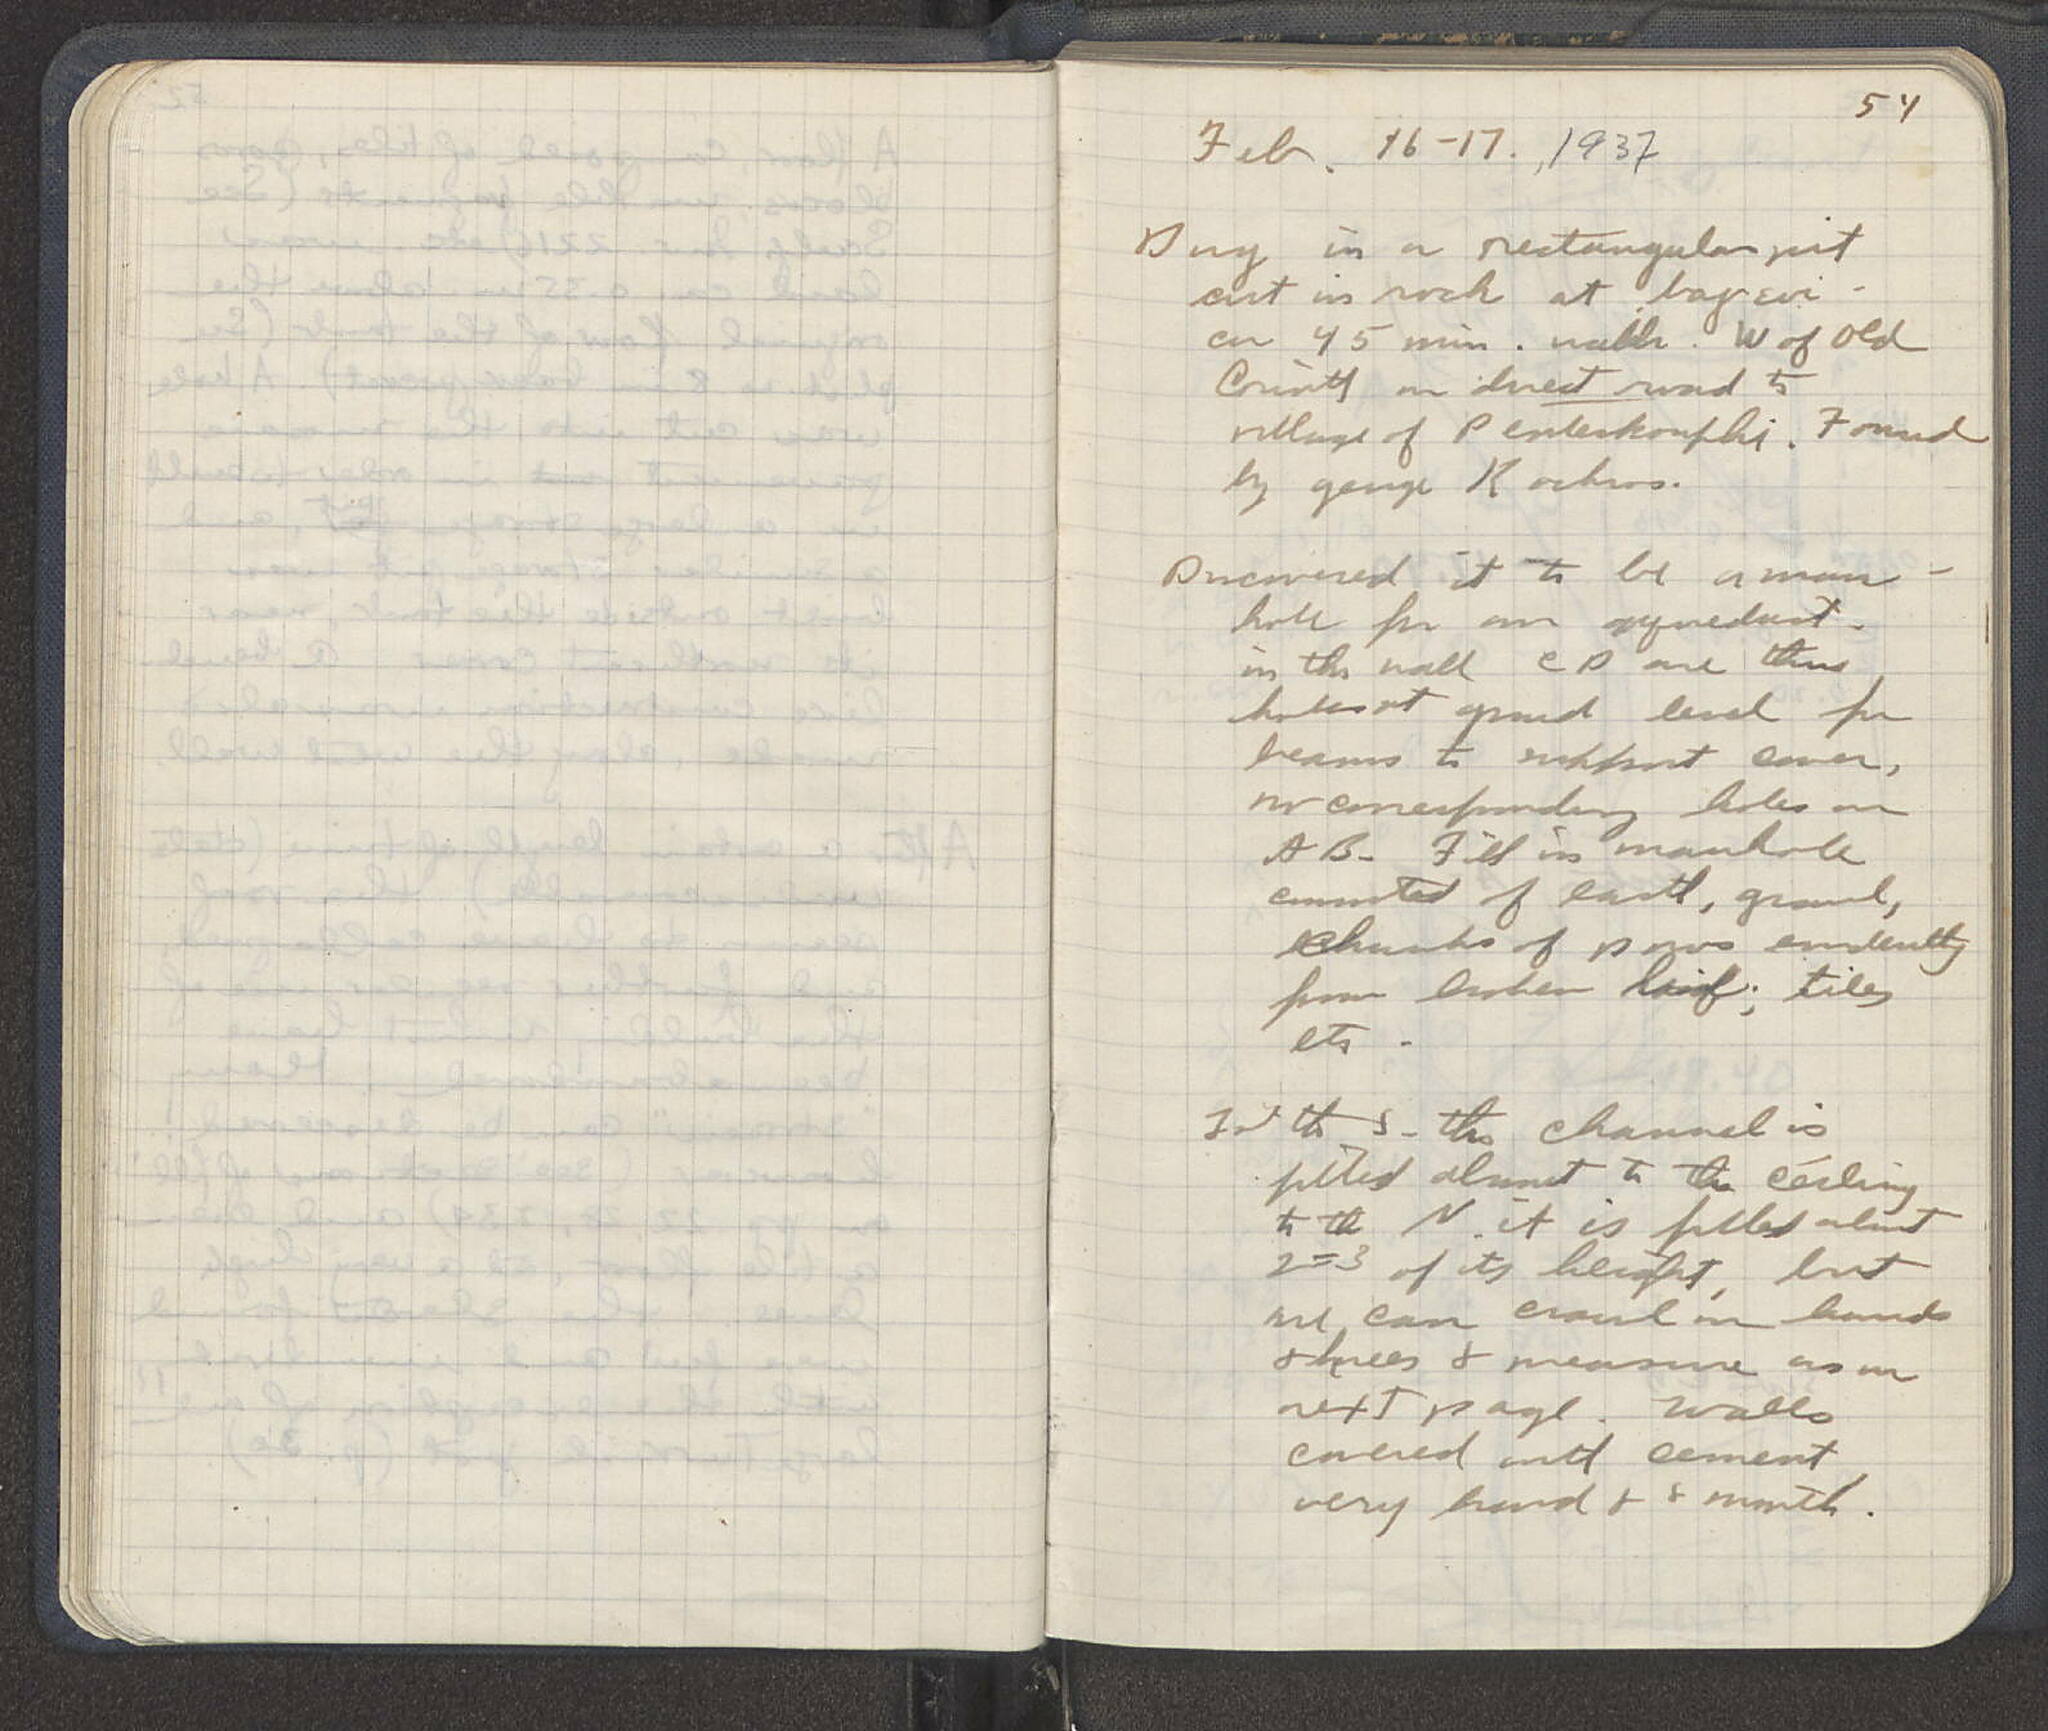 54
Feb. 16-17., 1937
Dug in a rectangular pit
cut in rock at
ca 45 min. walk. W of Old
Corinth on direct road to
village of Penteskouphi. Found
by George Kachros.
Discovered it to be a man-
hole for an aqueduct.
in the wall CD are three
holes at ground level for
beams to support cover,
no corresponding holes on
AB. Fill in manhole
consisted of earth, gravel,
chunks of poros evidently
from broken ; tiles
etc.
To the S. the channel is
filled almost to the ceiling
to the N. it is filled about
2=3 of its height, but
we can crawl on hands
& knees & measure as on
next page. Walls
covered with cement
very hard & smooth.